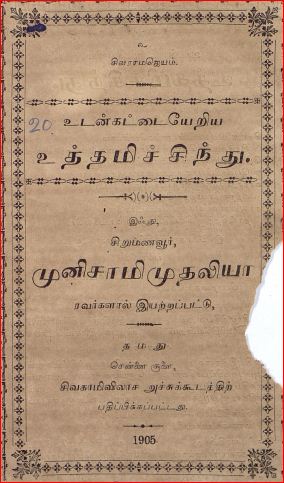 உ
சிவரசமஜெயம்.
20
உடன்கட்டையேறிய
உத்தமிச்சிந்து.
இஃது,
சிறுமணவூர்,
முனிசாமிமுதலியா
ரவர்களால் இயற்றப்பட்டு,
தமது
சென்னை சூளை,
சிவகாமிவிலாச அச்சுக்கூடத்திற்
பதிப்பிக்கப்பட்டது.
1905